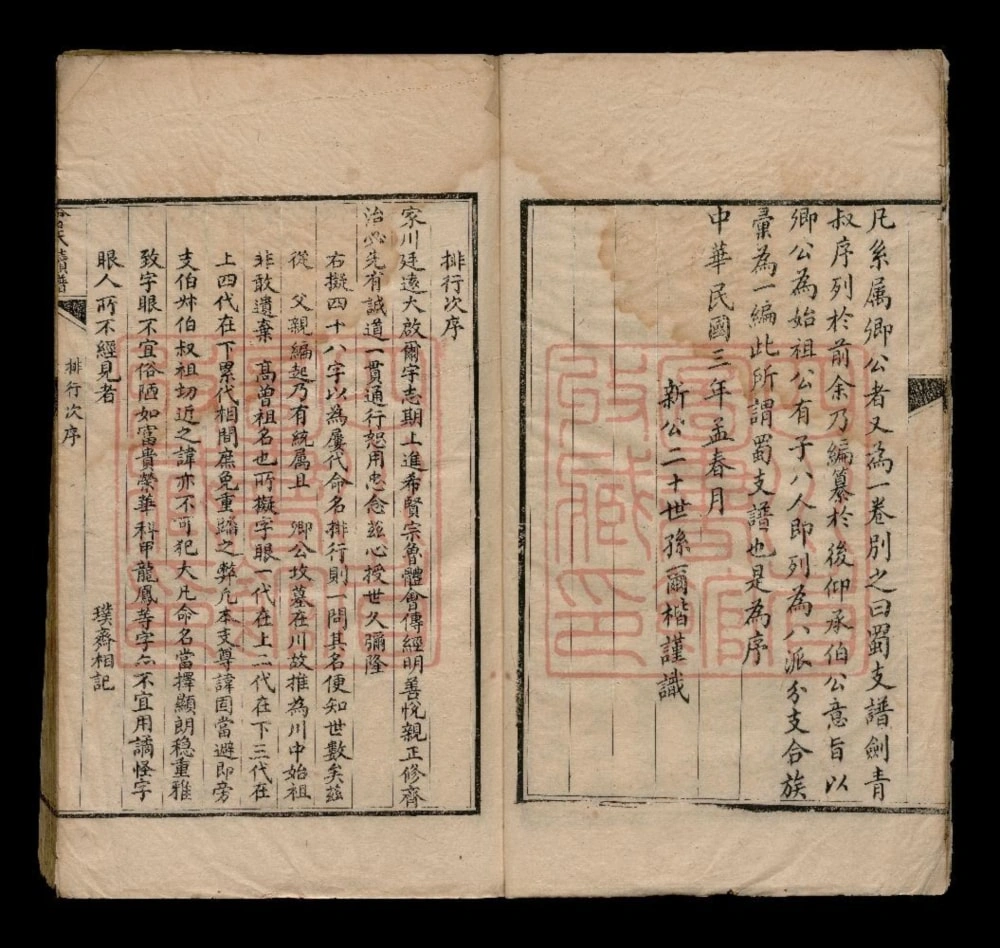 凡系属卿公者又為一卷別之曰蜀支譜劍青
叔序列於前余乃編纂於後仰承伯公意旨以
卿公為始祖公有子八人即列為八派分支合族
彙為一編此所謂蜀支譜也是為序
中華民國三年孟春月
新公二十世孫爾楷謹識
排行次序
家川廷遠大啟爾宇志期上進希賢宗魯體會傳經明善悅親正修齊
治必先有誠道一貫通行恕用忠念茲心授世久彌隆
右擬四十八字以為屢代命名排行則一問其名便知世數矣茲
從　父親編起乃有統属且　卿公坟墓在川故推為川中始祖
非敢遺棄　高曾祖名也所擬字眼一代在上二代在下三代在
上四代在下累代相間庶免重蹈之弊凡本支尊諱固當避即旁
支伯叔伯叔祖切近之諱亦不可犯大凡命名當擇顯朗穩重雅
致字眼不宜俗陋如富貴榮華科甲龍鳳等字亦不宜用譎怪字
眼人所不經見者
璞齋相記
氏譜
排行次序